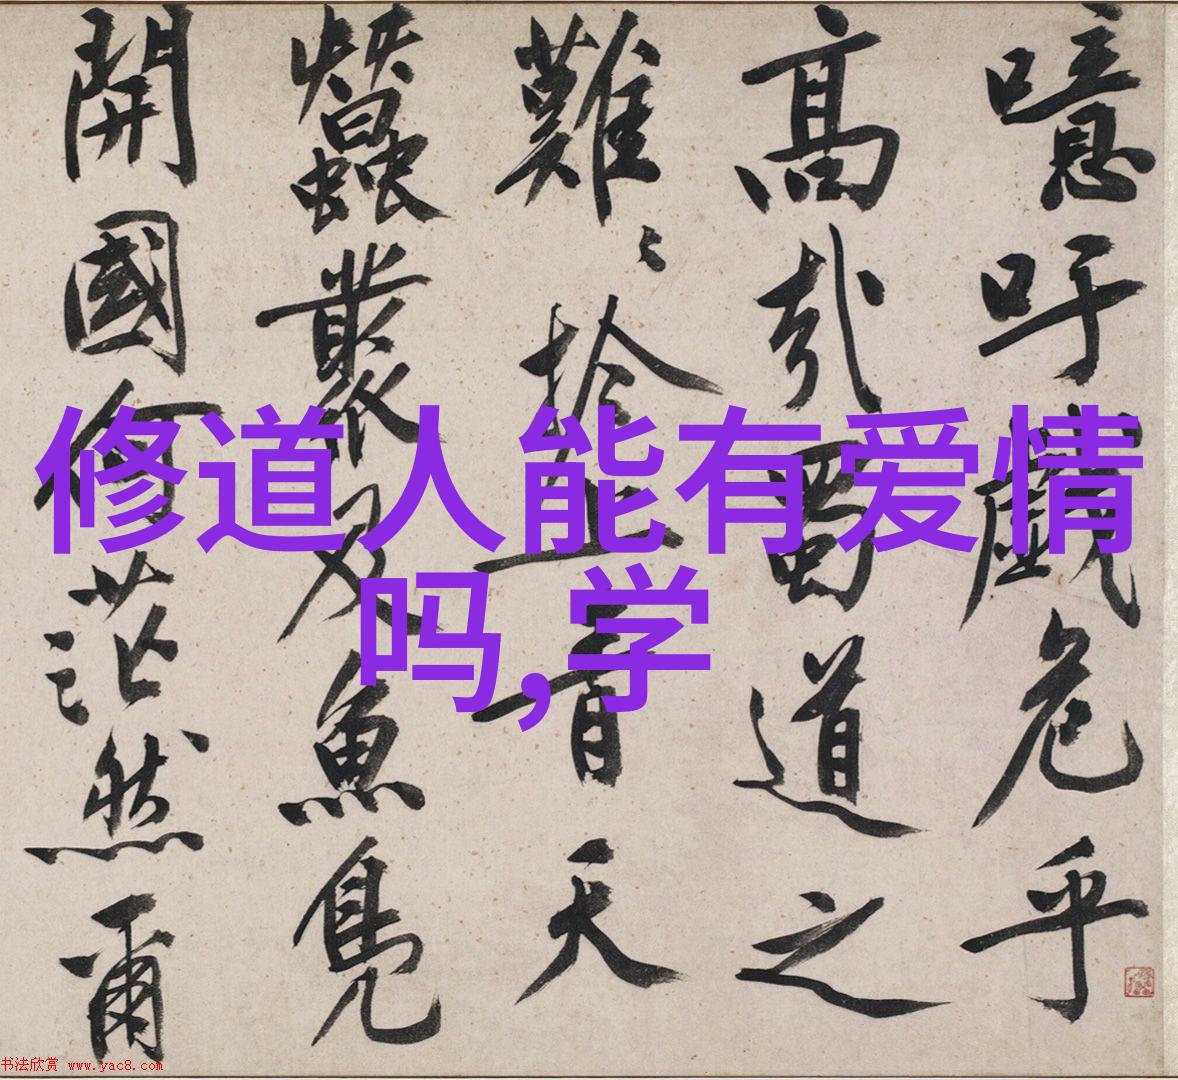 修道人能有爱情
吗,学
噫吁戲危乎
高哉蜀道之
難〻於上青天
蠶叢及魚鳧
開國何茫然爾
书法欣赏 www.yac8.com